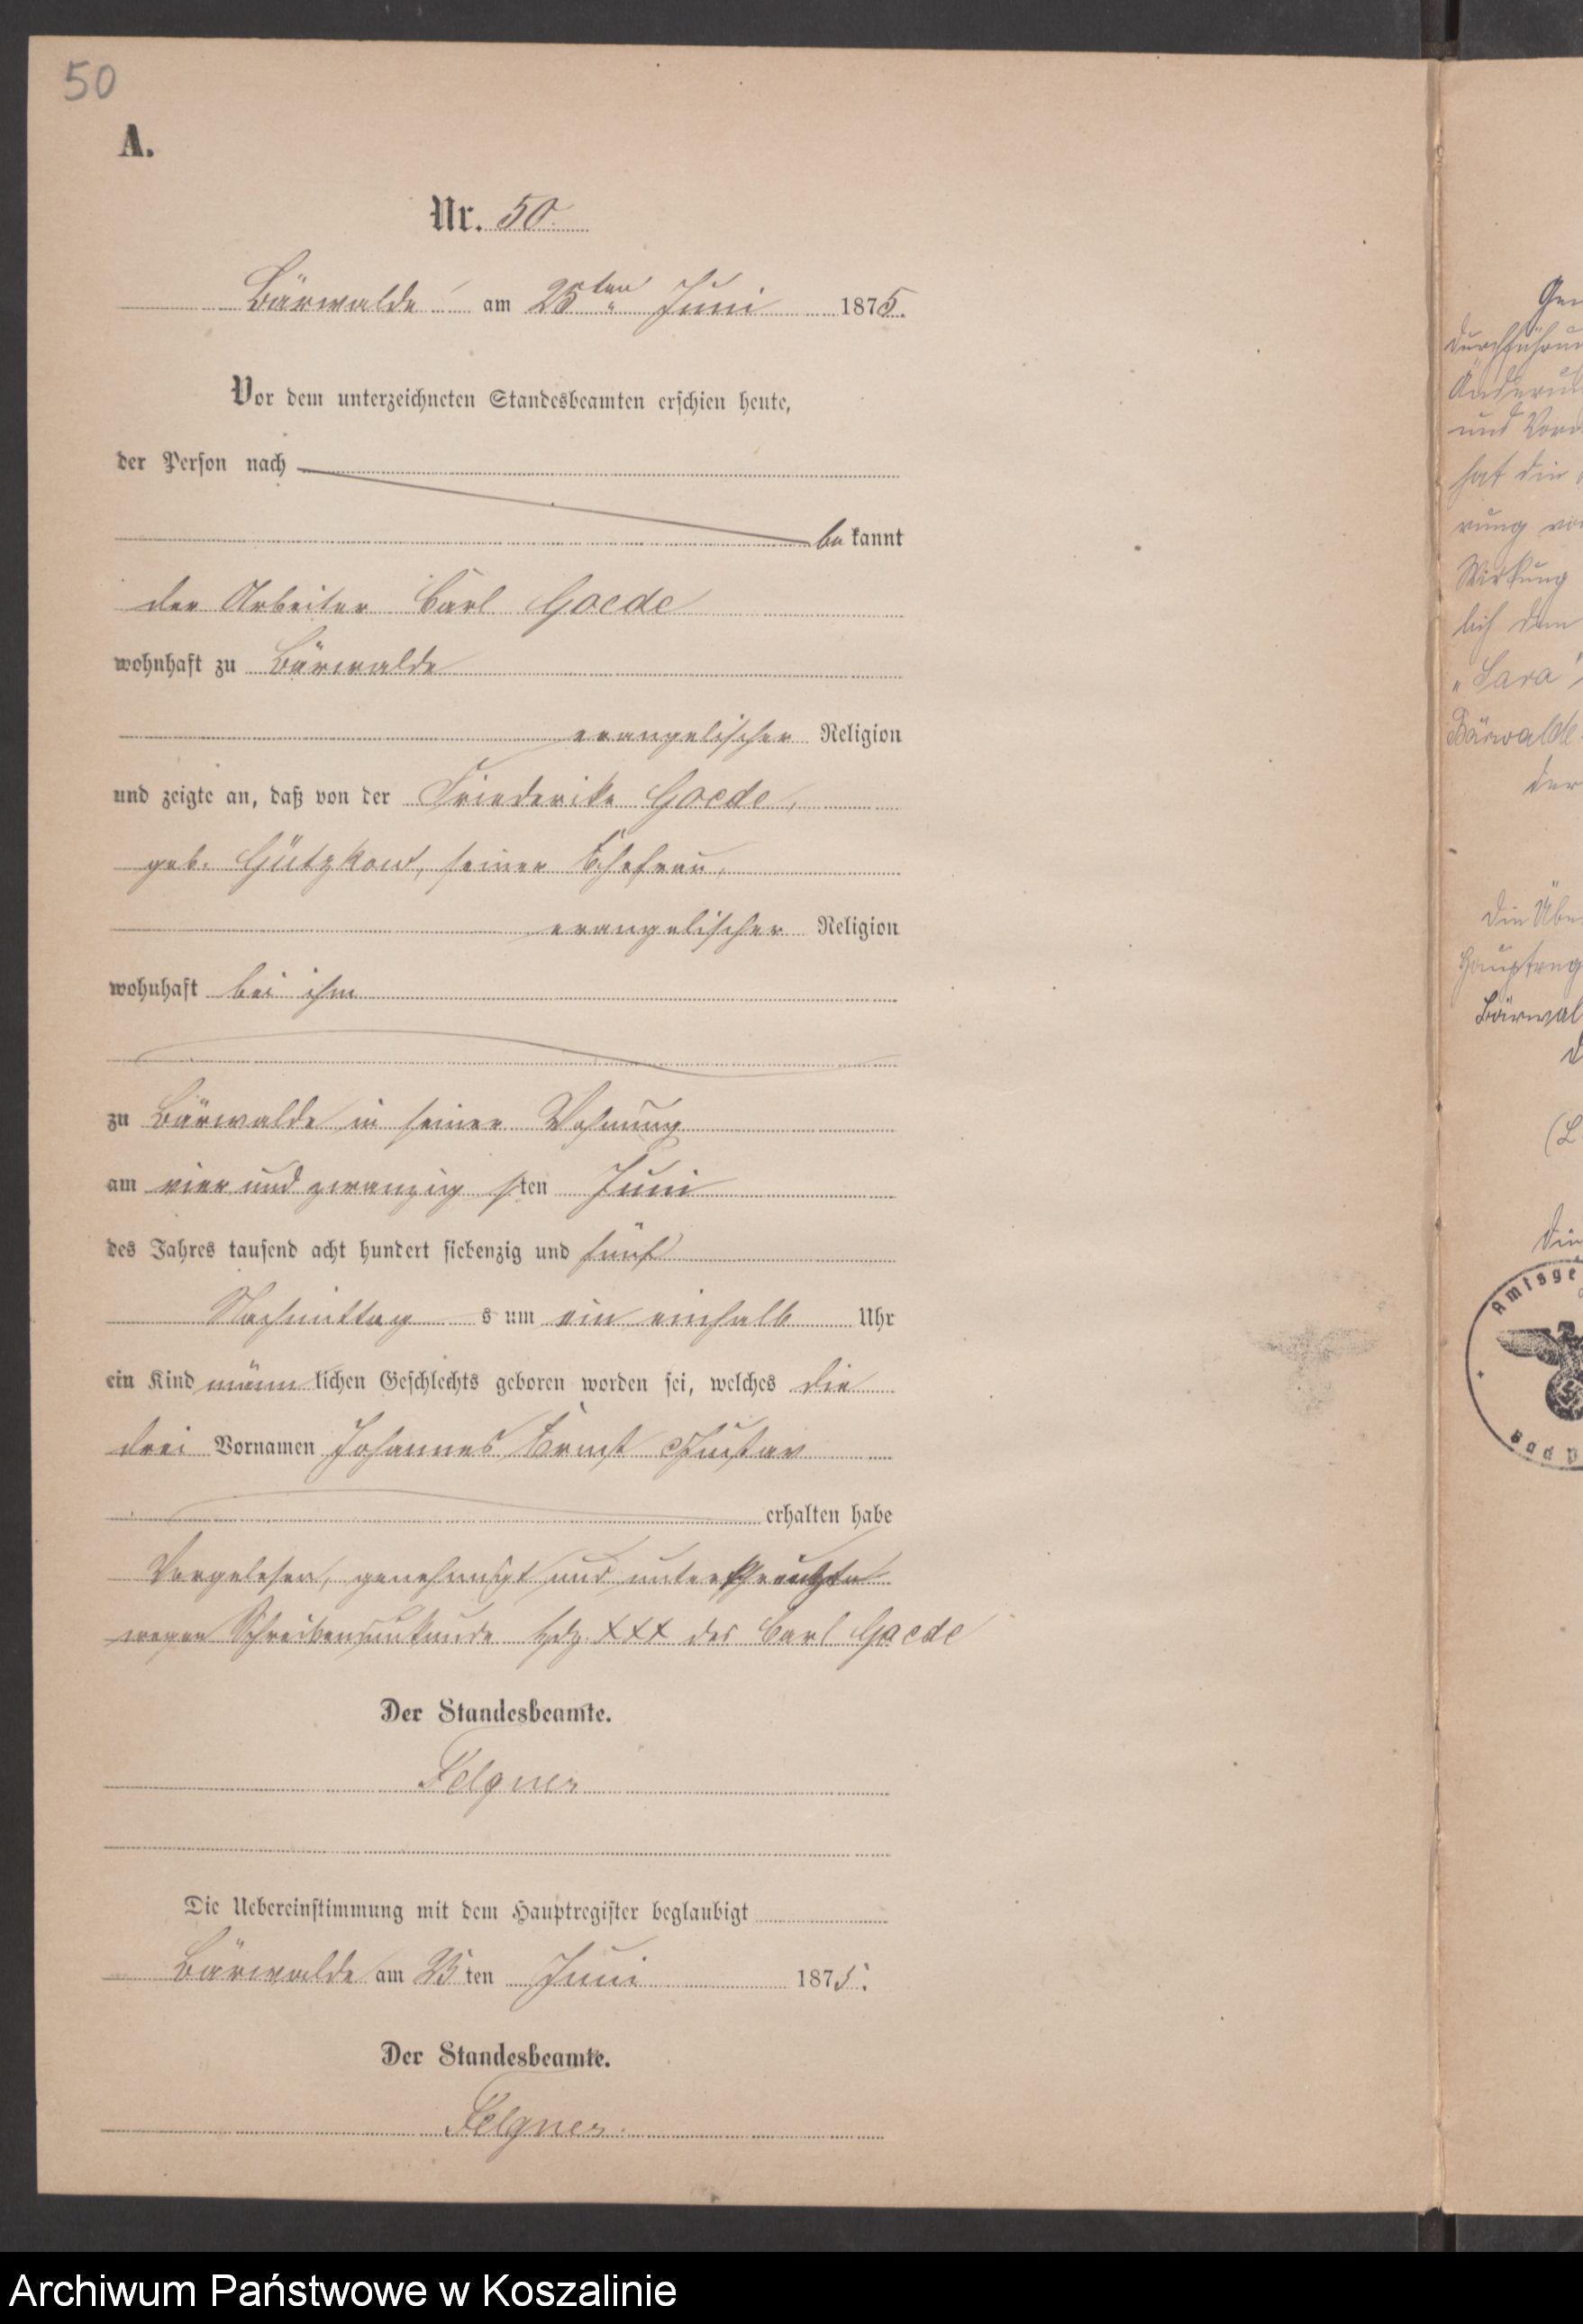 50
A.
Nr. 50
Bärwalde am 25ten Juni 1875.
Vor dem unterzeichneten Standesbeamten erschien heute,
der Person nach
bekannt
der Arbeiter Carl Goede
wohnhaft zu Bärwalde
evangelischer Religion
und zeigte an, daß von der Friederike Goede,
geb. Gützkow, seiner Ehefrau,
evangelischer Religion
wohnhaft bei ihm
zu Bärwalde in seiner Wohnung
am vier und zwanzigsten Juni
des Jahres tausend acht hundert siebenzig und fünf
Nachmittags um ein einhalb Uhr
ein Kind männlichen Geschlechts geboren worden sei, welches die
drei Vornamen Johannes Ernst Gustav
erhalten habe
Vorgelesen, genehmigt und unterkreuzt
wegen Schreibensunkunde Hdz. XXX des Carl Goede
Der Standesbeamte.
Felgner
Die Uebereinstimmung mit dem Hauptregister beglaubigt
Bärwalde am 25ten Juni 1875.
Der Standesbeamte.
Felgner.
und Vor
hat die
rung
Wirkung
lich dem
„Sara"
Bärwalde
der
Die Übe
Hauptreg
Bärwal
(L
Die
Amtsge
Bad P
Archiwum Państwowe w Koszalinie